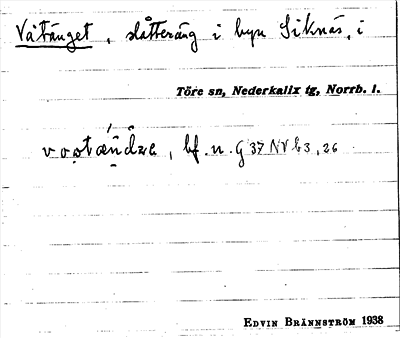 Våtänget, slåtteräng i byn Siknäs, i
Töre sn, Nederkalix tg, Norrb. l.
bf. n. G 37 NV b3, 26
EDVIN BRÄNNSTRÖM 1938